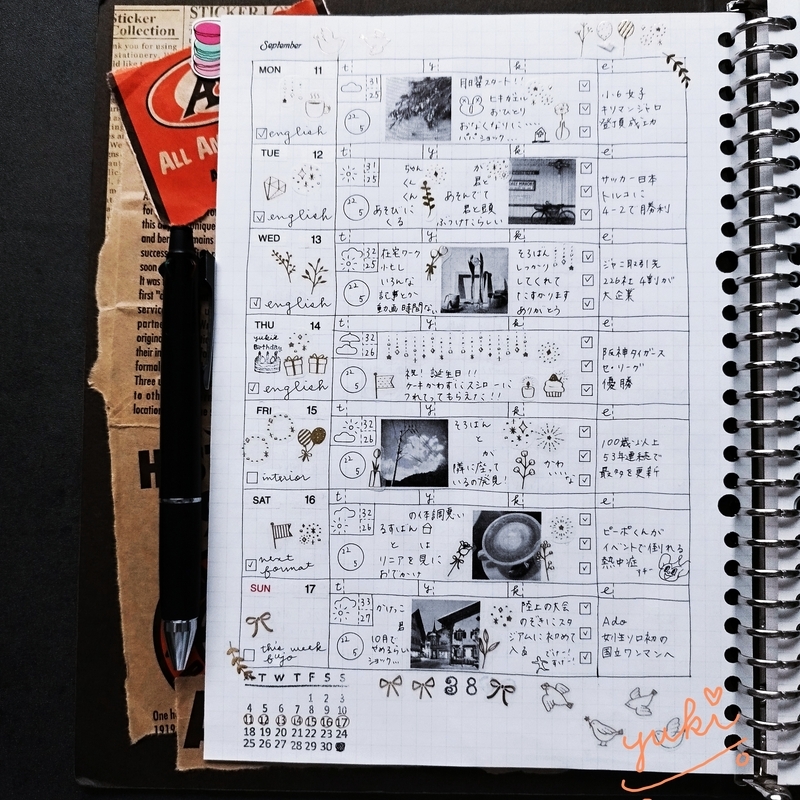 Sticker
Collection
STICKER
ALL AM
September
MON 11
t y k e
31
25
月曜スタート!!
ヒキガエル
おひとり
おなくなりに……
小6女子
キリマンジャロ
登頂成功
english
TUE 12
t y k e
31
25
ちゃん
くん
くん
あそびに
くる
か
君と
あそんでて
君と頭
ぶつけたらしい
サッカー日本
トルコに
4-2で勝利
english
WED 13
t y k e
32
25
在宅ワーク
少もし
いろんな
記事とか
動画時間ない
そろばん
しっかり
してくれて
たすかります
ありがとう
ジャニ取引先
226社 4割が
大企業
english
THU 14
t y k e
yukiz
Birthday
32
26
祝!誕生日!!
ケーキかわずにスシローに
つれてってもらえた!!
阪神タイガース
セ・リーグ
優勝
english
FRI 15
t y k e
32
26
そろばん
と
か
隣に座って
いるの発見!
かわ
いいな
100歳以上
53年連続で
最多を更新
interior
SAT 16
t y k e
32
26
の体調悪い
るすばん
と は
リニアを見に
おでかけ
ピーポくんが
イベントで倒れる
熱中症
next
format
SUN 17
t y k e
33
27
かけっこ
君
10月で
やめるらしい
ショック…
陸上の大会
のぞきにスタ
ジアムに初めて
入る
Ado
女性ソロ初の
国立ワンマンへ
this week
bujo
T W T F S S
1 2 3
4 5 6 7 8 9 10
11 12 13 14 15 16 17
18 19 20 21 22 23 24
25 26 27 28 29 30
38
yuki